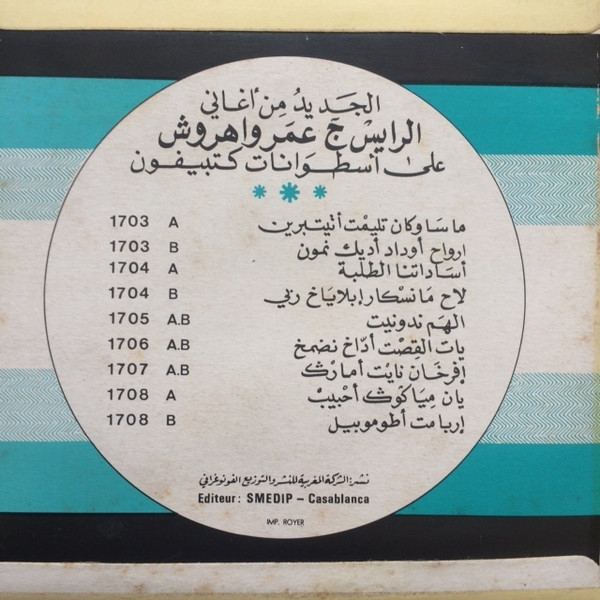 الجَديدُ مِن أغاني
الرايسْ جّ عمَر واهروش
على أسطوانات كتبيفون
1703 A ما سَا وكان تليمْت أتيتبرين
1703 B ارواح أوداد أديك نمون
1704 A أسَاداتنا الطلبة
1704 B لاح مَا نسْكار إبلا ياخ ربي
1705 A.B الهَم ندونيت
1706 A.B يات القِصْت أدّاخ نضمخ
1707 A.B إفرخَان نايْت أمارڭ
1708 A يان مِيَا كَوڭ أحْبيبْ
1708 B إربا مت أطوموبيل
نشر: الشركة المغربية للنشر والتوزيع الفونوغرافي
Editeur : SMEDIP – Casablanca
IMP. ROYER